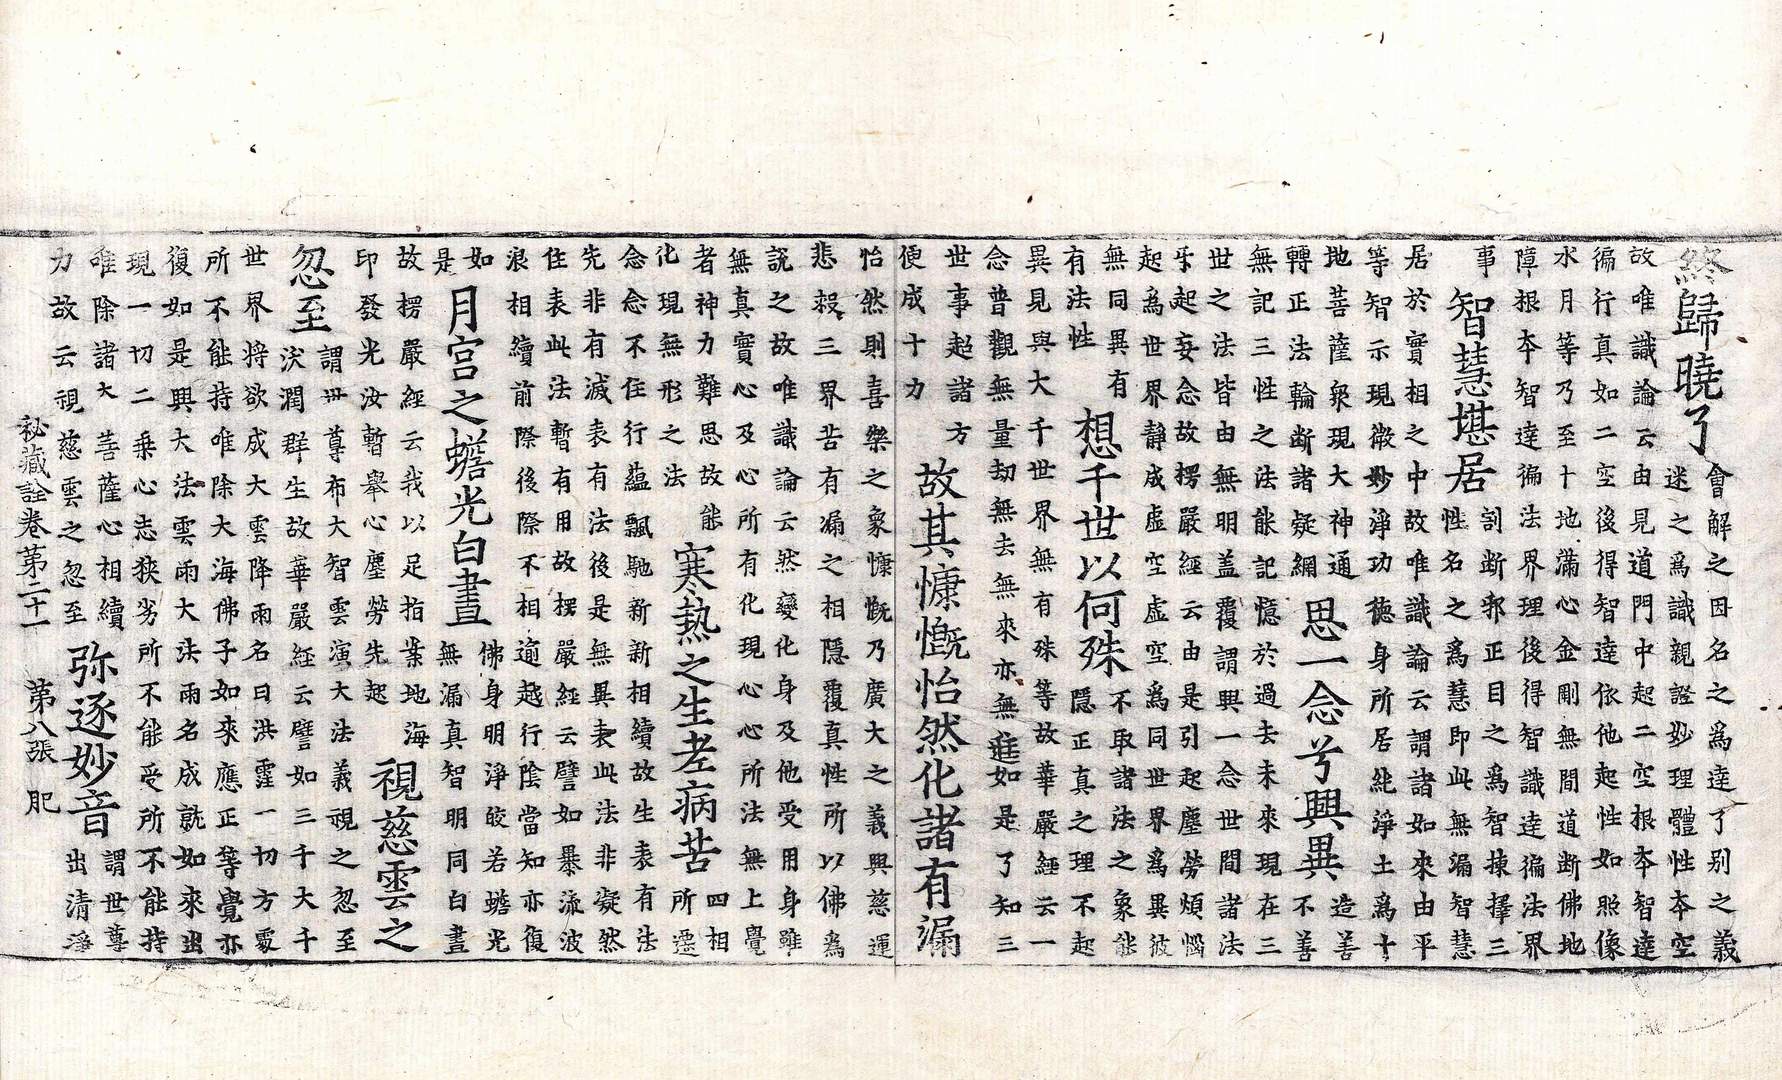 終歸曉了
會解之因名之為達了別之義
迷之為識親證妙理體性本空
故唯識論云由見道門中起二空根本智達
徧行真如二空後得智達依他起性如照像
水月等乃至十地滿心金剛無間道斷佛地
障根本智達徧法界理後得智識達徧法界
事
智慧堪居
割斷邪正目之為智揀擇三
性名之為慧即此無漏智慧
居於實相之中故唯識論云謂諸如來由平
等智示現微妙淨功德身所居純淨土為十
地菩薩衆現大神通
轉正法輪斷諸疑網
思一念兮興異
造善
不善
無記三性之法能記憶於過去未來現在三
世之法皆由無明盖覆謂興一念世間諸法
起妄念故楞嚴經云由是引起塵勞煩惱
起為世界靜成虛空虛空為同世界為異彼
無同異有
有法性
想千世以何殊
不取諸法之象能
隱正真之理不起
異見與大千世界無有殊等故華嚴經云一
念普觀無量劫無去無來亦無住如是了知三
世事起諸方
便成十力
故其慷慨怡然化諸有漏
怡然則喜樂之象慷慨乃廣大之義興慈運
悲救三界苦有漏之相隱覆真性所以佛為
說之故唯識論云然變化身及他受用身雖
無真實心及心所有化現心心所法無上覺
者神力難思故能
化現無形之法
寒熱之生老病苦
四相
所遷
念念不住行蘊飄馳新新相續故生表有法
先非有滅表有法後是無異表此法非凝然
住表此法暫有用故楞嚴經云譬如暴流波
浪相續前際後際不相逾越行陰當知亦復
如
是
月宮之蟾光白晝
佛身明淨皎若蟾光
無漏真智明同白晝
故楞嚴經云我以足指案地海
印發光汝暫舉心塵勞先起
視慈雲之
忽至
謂世尊布大智雲演大法義視之忽至
洪潤群生故華嚴經云譬如三千大千
世界將欲成大雲降雨名曰洪霔一切方處
所不能持唯除大海佛子如來應正等覺亦
復如是興大法雲雨大法雨名成就如來出
現一切二乘心志狹劣所不能受所不能持
唯除諸大菩薩心相續
力故云視慈雲之忽至
弥逐妙音
謂世尊
出清淨
秘藏詮卷第二十一　第八張　肥